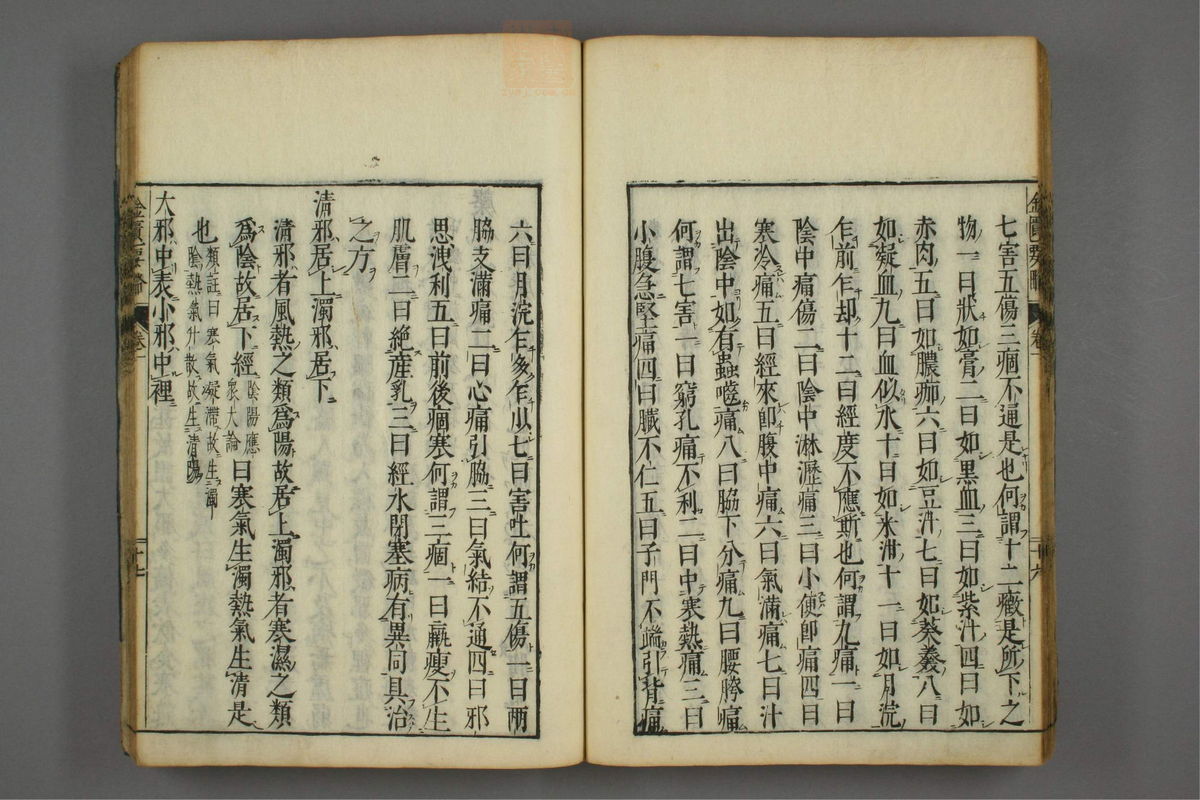 七害五傷三痼不通是也何謂十二癥是所下之
物一曰狀如膏二曰如黑血三曰如紫汁四曰如
赤肉五曰如膿痂六曰如豆汁七曰如葵羹八曰
如凝血九曰血似水十曰如米泔十一曰如月浣
乍前乍却十二曰經度不應期也何謂九痛一曰
陰中痛傷二曰陰中淋瀝痛三曰小便卽痛四曰
寒冷痛五曰經來卽腹中痛六曰氣滿痛七曰汁
出陰中如有蟲嚙痛八曰脇下分痛九曰腰胯痛
何謂七害一曰窮孔痛不利二曰中寒熱痛三曰
小腹急堅痛四曰臟不仁五曰子門不端引背痛
金匱要略 卷一 十六
六曰月浣乍多乍少七曰害吐何謂五傷一曰兩
脇支滿痛二曰心痛引脇三曰氣結不通四曰邪
思洩利五曰前後痼寒何謂三痼一曰羸瘦不生
肌膚二曰絶產乳三曰經水閉塞病有異同具治
之方
清邪居上濁邪居下
清邪者風熱之類爲陽故居上濁邪者寒濕之類
爲陰故居下經陰陽應衆大論曰寒氣生濁熱氣生清是
也類註曰寒氣凝滯故生濁陰熱氣升散故生清陽
大邪中表小邪中裡
金匱要略 卷一 十七